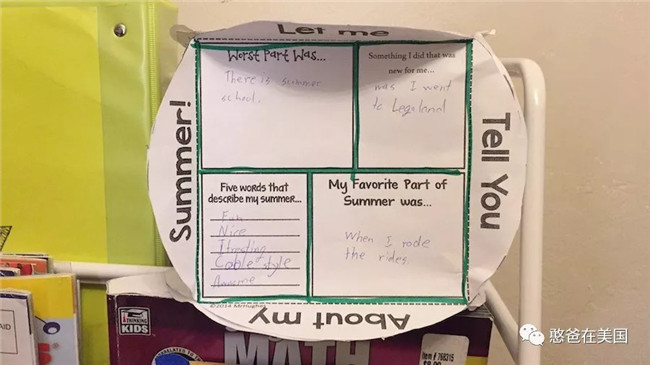 Let me
Worst Part Was...
There is summer
school.
Something I did that was
new for me...
was I went
to Legoland
Summer!
Tell You
Five words that
describe my summer...
Fun
Nice
Itresting
Coble style
Awsome
My Favorite Part of
Summer was...
When I rode
the rides
About my
THINKING
KIDS
MATH
Item # 768315
AID
憨爸在美国